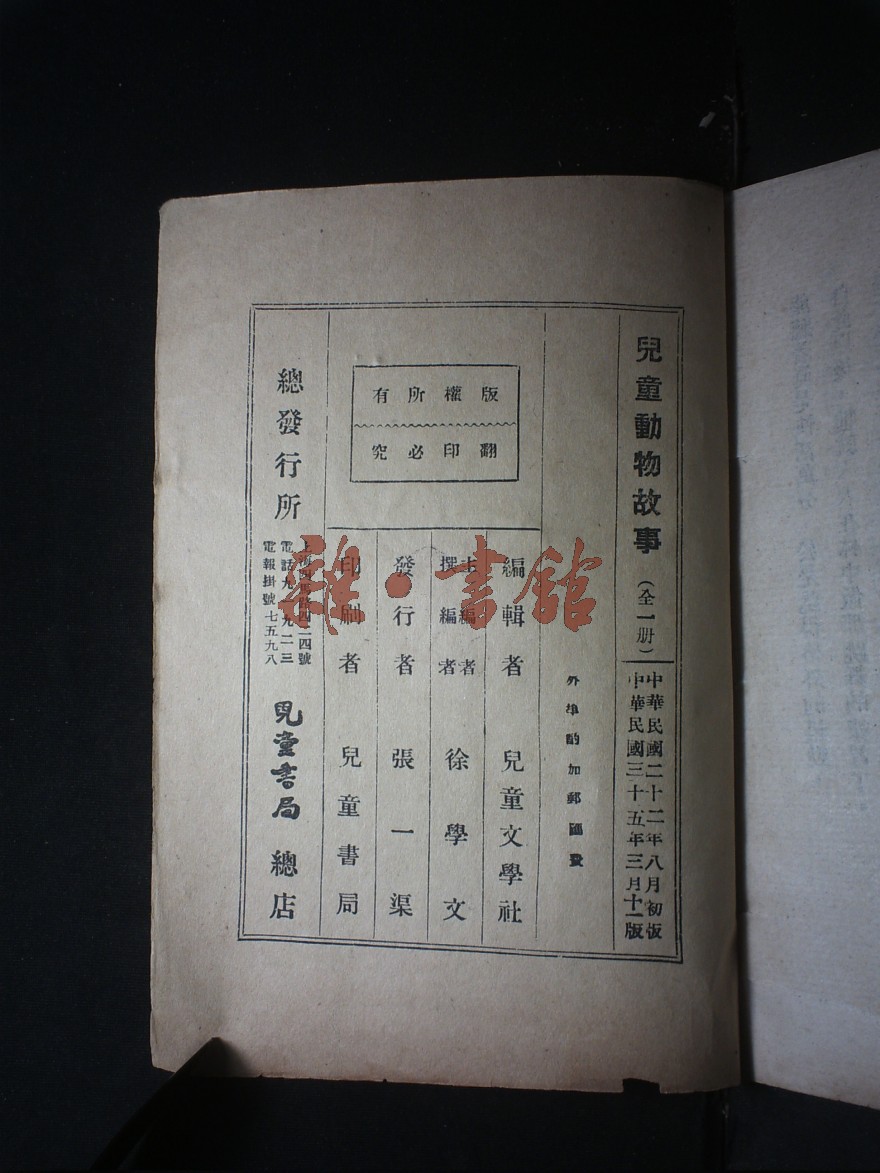 兒童動物故事（全一册）
中華民國二十二年八月初版
中華民國三十五年三月十一版
外埠酌加郵匯費
版權所有
翻印必究
編輯者 兒童文學社
主編者
撰編者
徐學文
發行者 張一渠
印刷者 兒童書局
總發行所
上海四馬路四二四號
電話九一九二三
電報掛號七五九八
兒童書局 總店
雜·書館